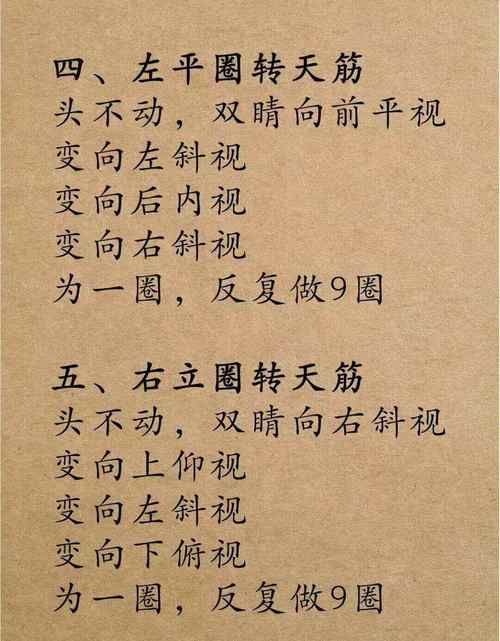 四、左平圈转天筋
头不动，双睛向前平视
变向左斜视
变向后内视
变向右斜视
为一圈，反复做9圈
五、右立圈转天筋
头不动，双睛向右斜视
变向上仰视
变向左斜视
变向下俯视
为一圈，反复做9圈